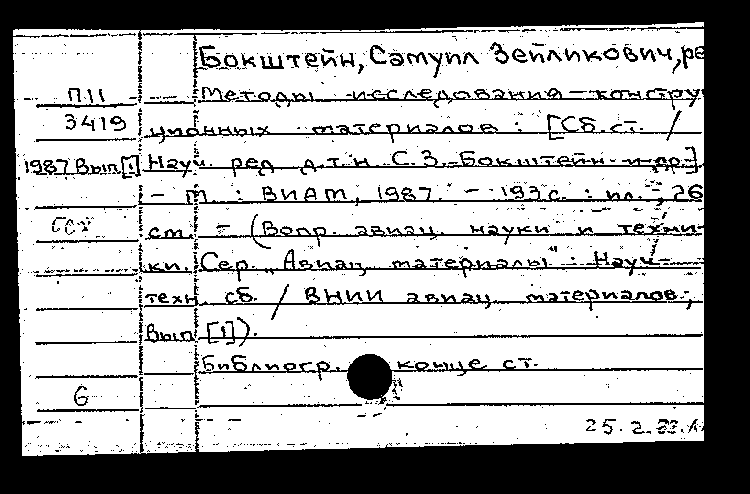 Бокштейн, Самуил Зейликович, ре
П11 Методы исследования констру
3419 ционных материалов : [Сб. ст. /
1987 Вып.[1] Науч. ред. д.т.н. С.З. Бокштейн и др.]
– М. : ВИАМ, 1987. – 193 с. : ил. ; 26
см. – (Вопр. авиац. науки и техни-
ки. Сер. „Авиац. материалы" : Науч.-
техн. сб. / ВНИИ авиац. материалов ;
Вып. [1]).
Библиогр. конце ст.
6
25. 2.